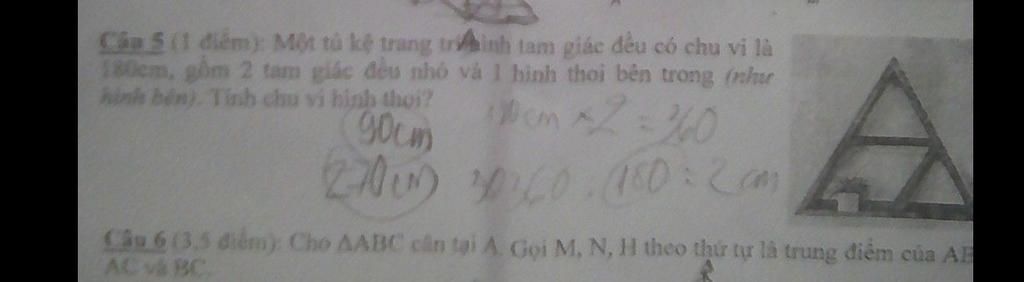 Câu 5 (1 điểm): Một tủ kệ trang trí hình tam giác đều có chu vi là
180cm, gồm 2 tam giác đều nhỏ và 1 hình thoi bên trong (như
hình bên). Tính chu vi hình thoi?
90cm 180cm × 2 = 360
270cm 360 . 180 : 2 cm
Câu 6 (3,5 điểm): Cho ΔABC cân tại A. Gọi M, N, H theo thứ tự là trung điểm của AB
AC và BC.